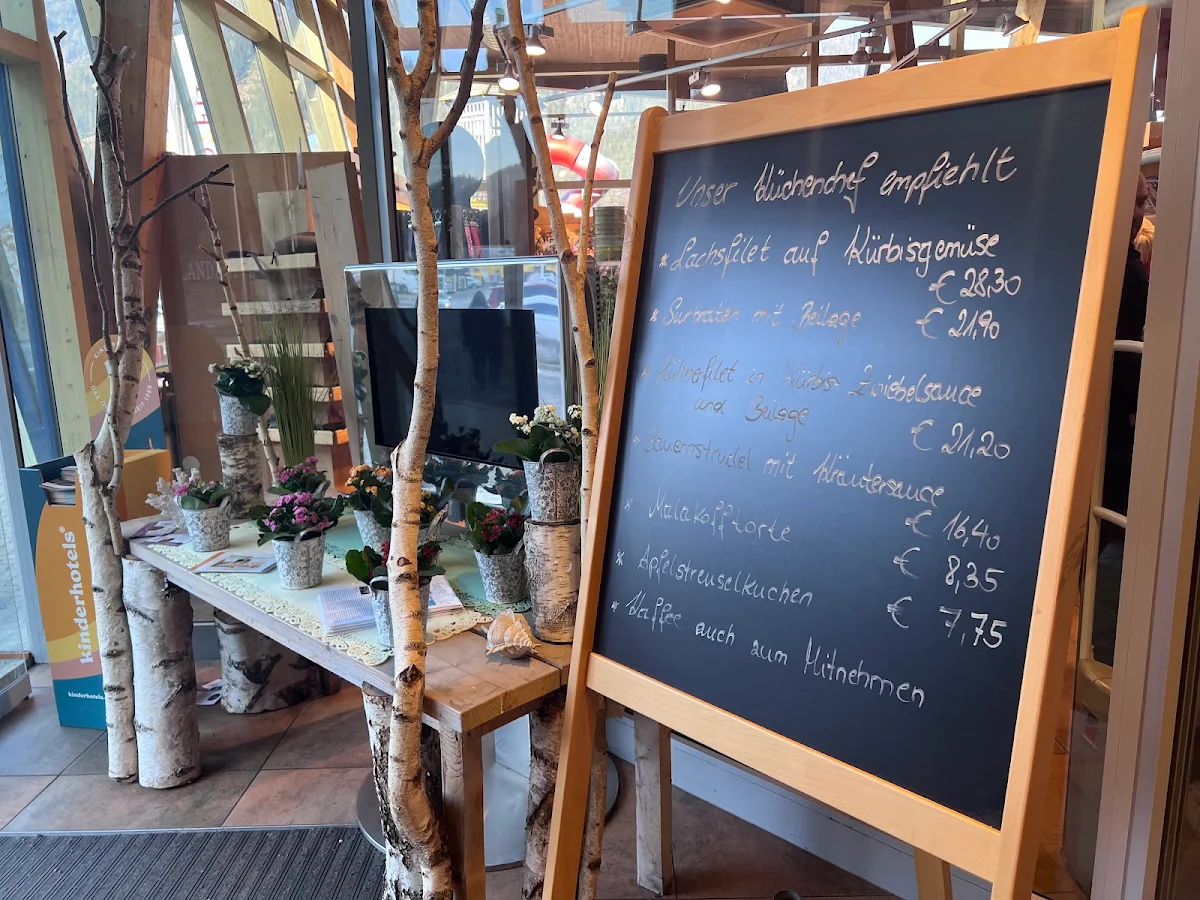 Unser Küchenchef empfiehlt
* Lachsfilet auf Kürbisgemüse
€ 28,30
* Surbraten mit Beilage € 21,90
* Hühnerfilet in Kürbis-Zwiebelsauce
und Beilage € 21,20
* Bauernstrudel mit Kräutersauce
€ 16,40
* Malakofftorte € 8,35
* Apfelstreuselkuchen € 7,75
* Kaffee auch zum Mitnehmen
kinderhotels®